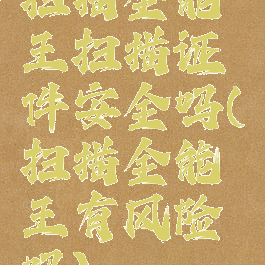 扫描全能
王扫描证
件安全吗(
扫描全能
王有风险
吗)